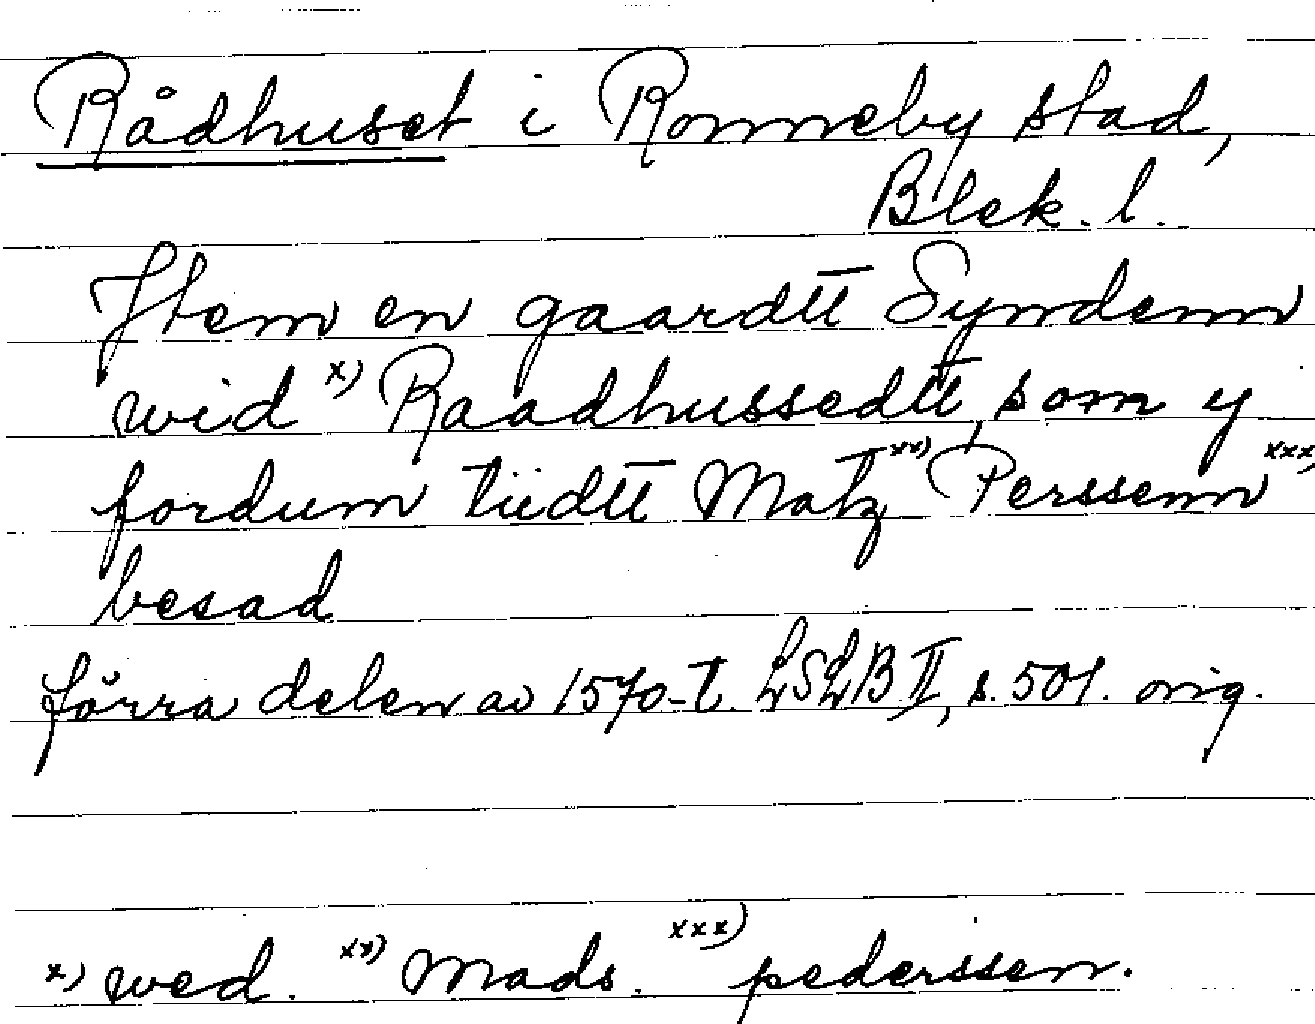 Rådhuset i Ronneby stad,
Blek. l.
Item en gaardtt Synndenn
wid x) Raadhussedtt, som y
fordum tiidtt Matz xx) Perssenn xxx)
besad
förra delen av 1570-t. LSLB II, s. 501. orig.
x) wed. xx) Mads. xxx) pederssen.